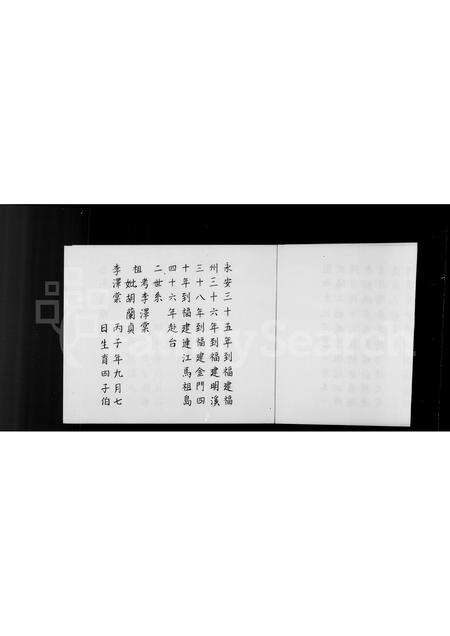 永安三十五年到福建福
州三十六年到福建明溪
三十八年到福建金門四
十年到福建連江馬祖島
四十六年赴台
二世系
祖考李澤棠
妣胡蘭貞
李澤棠 丙子年九月七
日生育四子伯
FamilySearch